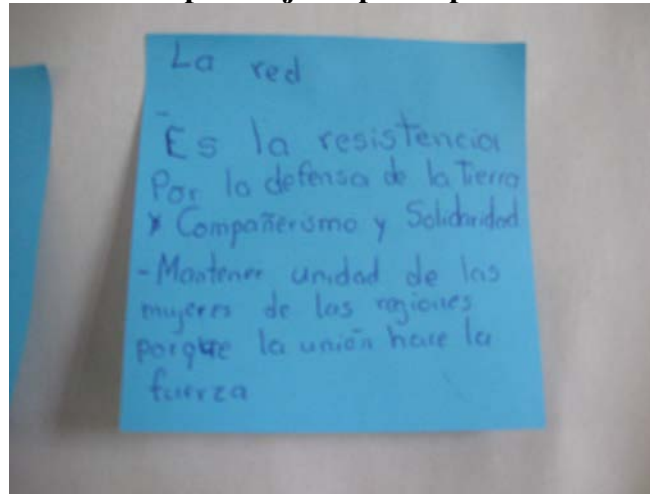 La red
- Es la resistencia
Por la defensa de la Tierra
* Compañerismo y Solidaridad
- Mantener unidad de las
mujeres de las regiones
porque la unión hace la
fuerza